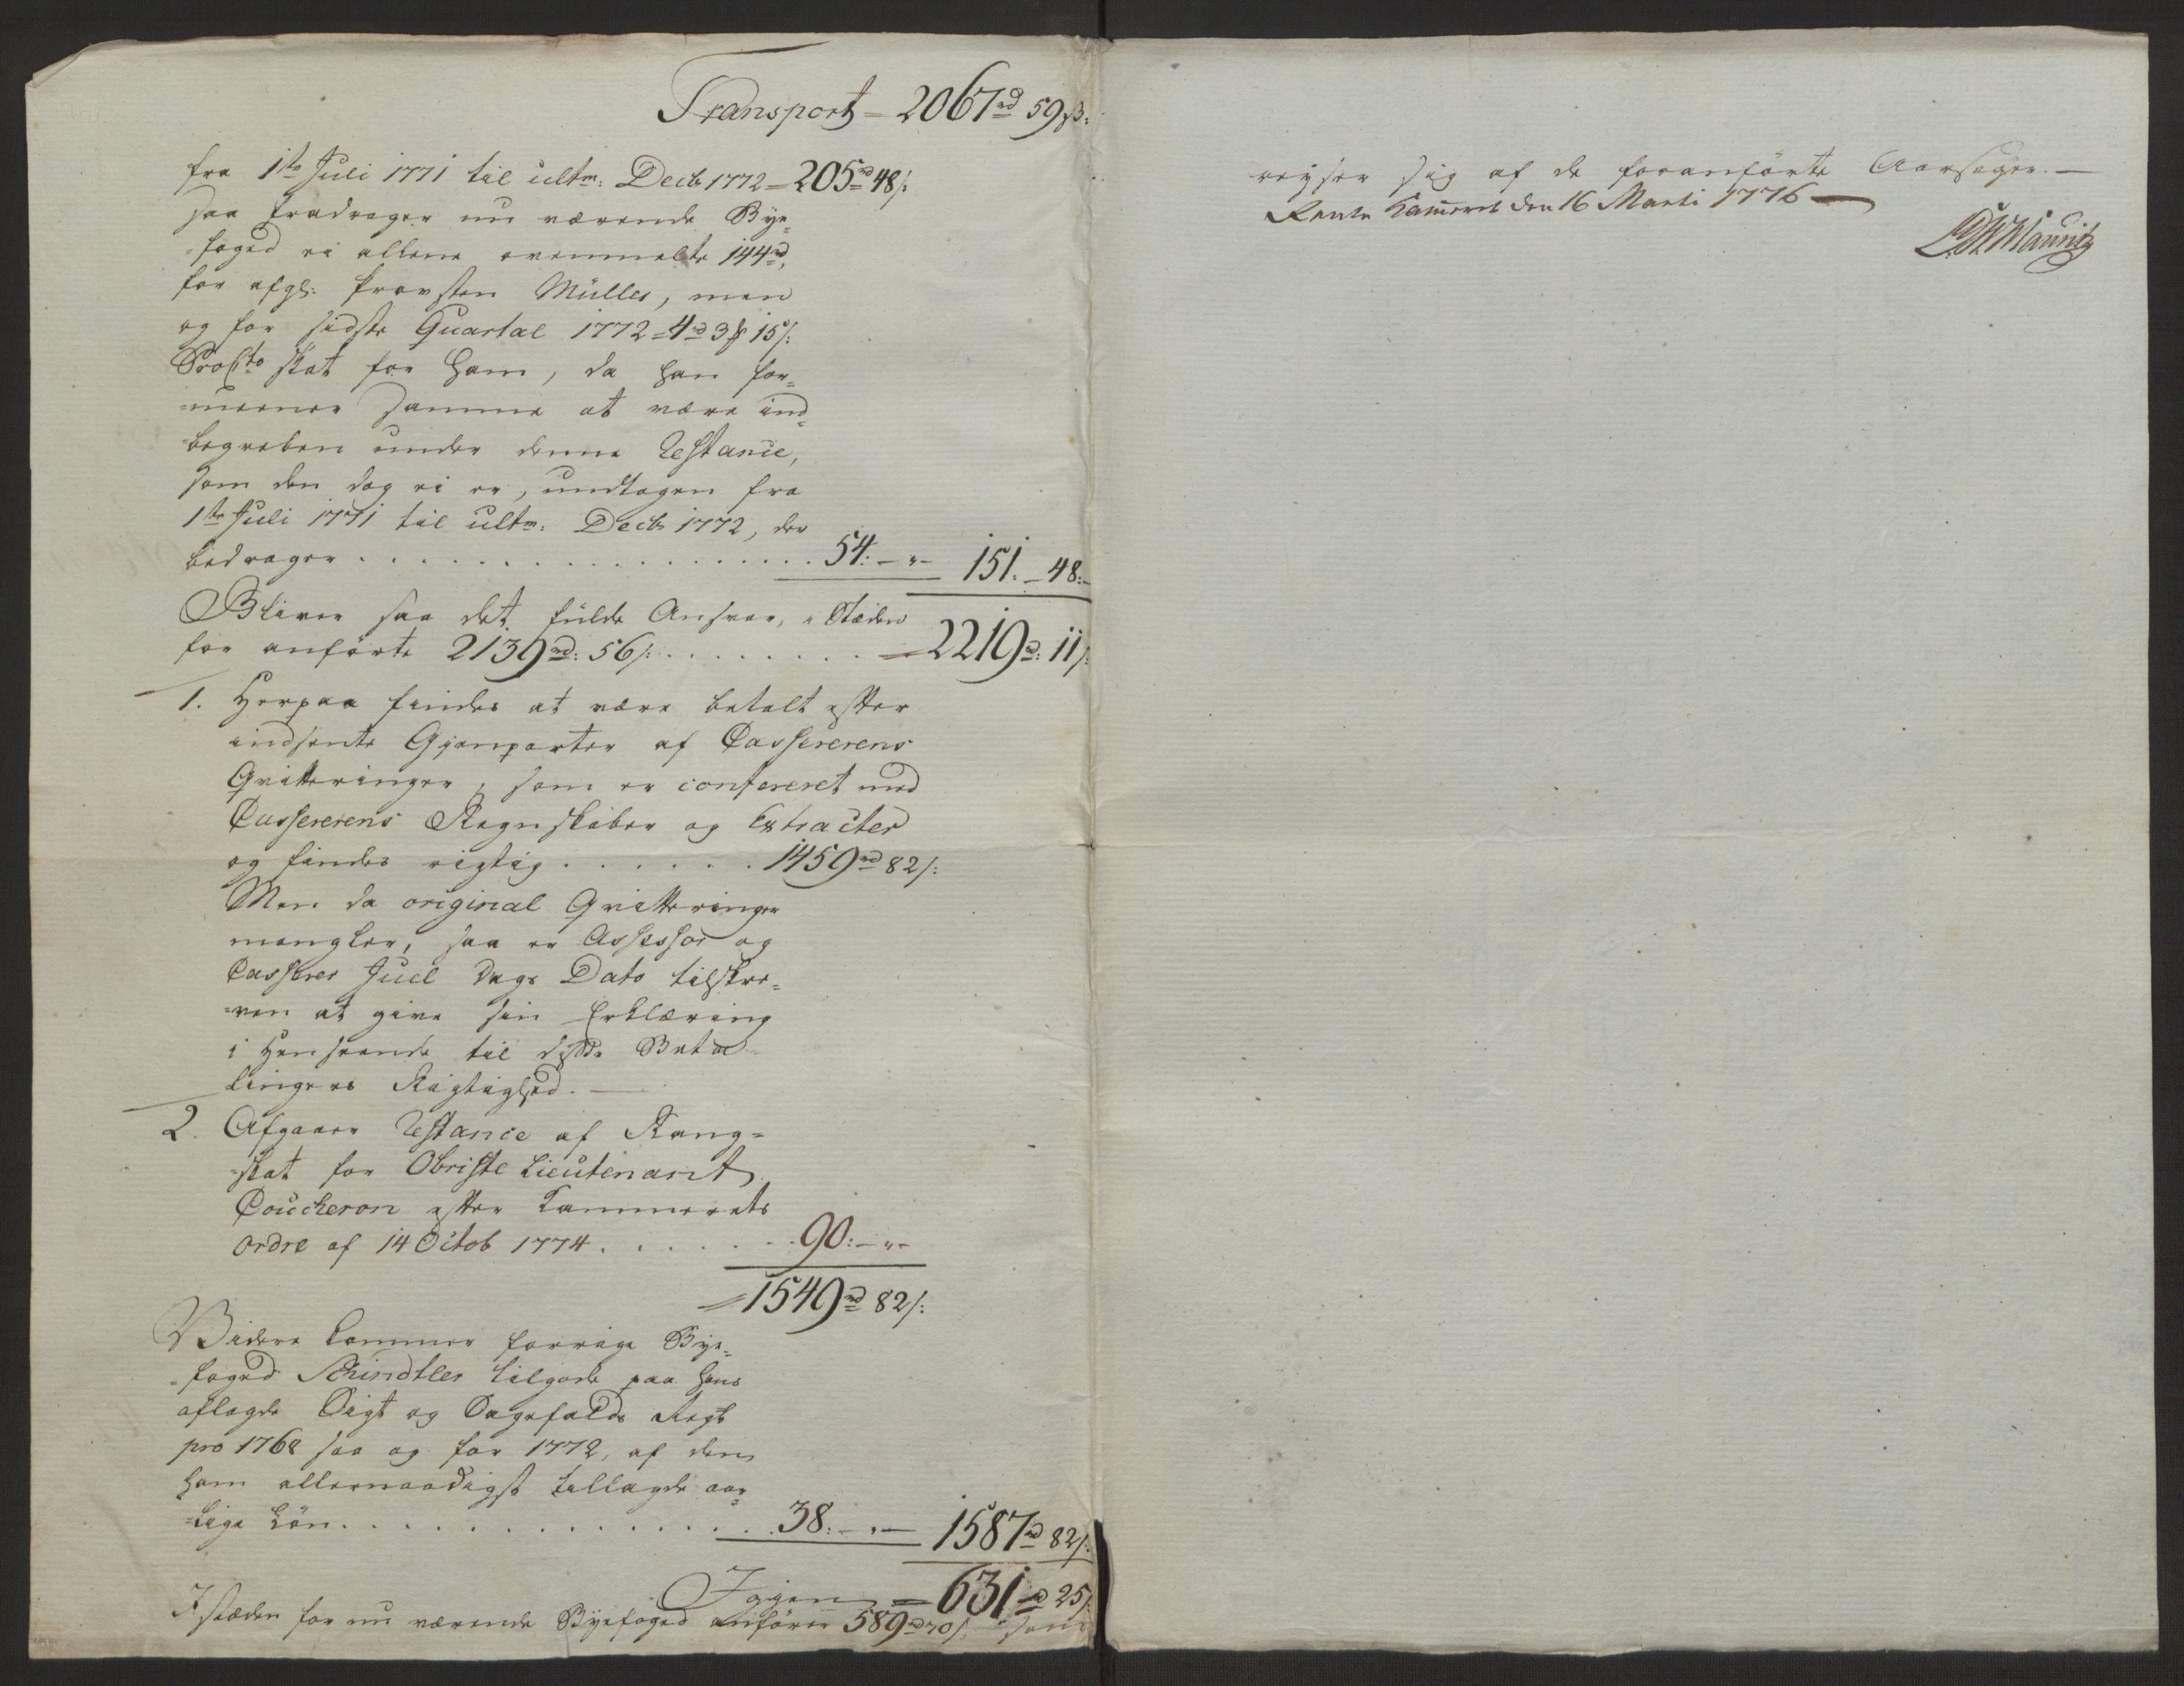 Transport = 2067rd 59ß:
fra 1te Juli 1771 til ultm: Decb 1772 = 205rd 48ß:
saa fradrager nu værende Bye=
=foged ei allene ovenmelte 144rd,
for afgl: Provsten Müller, men
og for sidste Quartal 1772 = 4rd 3 15ß:
Procto skat for ham, da han for=
=meener samme at være ind=
=begreben under denne Restance,
som den dog ei er, undtagen fra
1te Juli 1771 til ultm: Decb 1772, der
bedrager . . . . . . . . 54: - " - 151. - 48: -
Bliver saa det fulde Ansvar, i Stæden
for anførte 2139rd: 56ß: . . . . . . = 2219rd: 11ß:
1. Herpaa findes at være betalt efter
indsente Gienparter af Cassererens
Qvitteringer, som er confereret med
Cassererens Regnskaber og Extracter
og findes rigtig . . . . . . 1459rd 82ß:
Men da original Qvitteringer
mangler, saa er Assessor og
Casserer Juel Dags Dato tilskre=
=ven at give sin Erklæring
i Henseende til disse Beta=
lingers Rigtighed. —
2. Afgaaer Restance af Rang=
=skat for Obriste Lieutenant
Coucheron efter Kammerets
Ordre af 14 Octob 1774 . . . . . . 90: - " -
= 1549rd 82ß:
Videre kommer forrige Bye=
=foged Schindtler tilgode paa hans
aflagde Sigt og Sagefalds Regsk
pro 1768 saa og for 1772, af den
ham allernaadigst tillagde aar=
=lige Løn . . . . . . . . 38: - " - 1587rd 82ß:
Igien = 631rd 25ß:
I stæden for nu værende Byefoged anfører 589rd 70ß, som
reyser sig af de foranførte Aarsager. —
Rente Kammeret den 16 Marti 1776 —
Mauritz